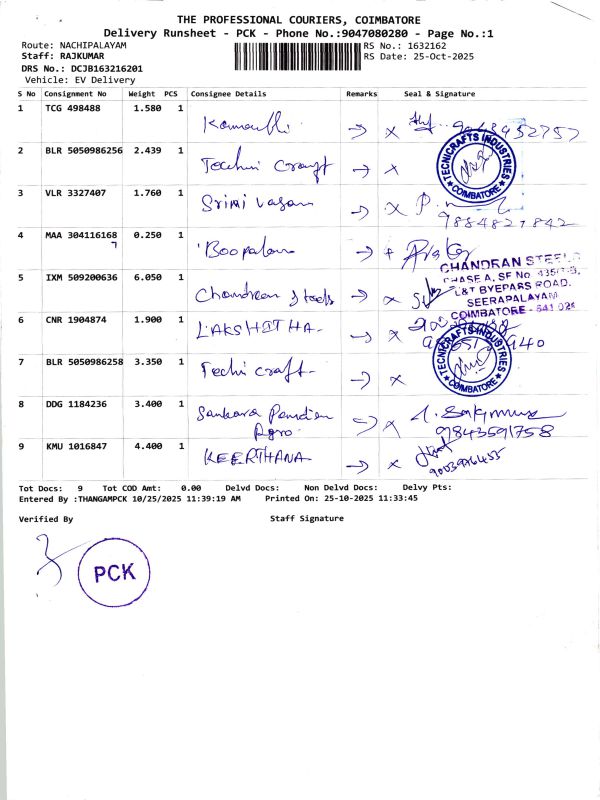 THE PROFESSIONAL COURIERS, COIMBATORE
Delivery Runsheet - PCK - Phone No.:9047080280 - Page No.:1
Route: NACHIPALAYAM RS No.: 1632162
Staff: RAJKUMAR RS Date: 25-Oct-2025
DRS No.: DCJB163216201
Vehicle: EV Delivery
S No Consignment No Weight PCS Consignee Details Remarks Seal & Signature
1 TCG 498488 1.580 1
2 BLR 5050986256 2.439 1 Techni Craft
TECNICRAFTS INDUSTRIES COIMBATORE
3 VLR 3327407 1.760 1 Srini vasan
9884827842
4 MAA 304116168 0.250 1 Boopalan
7
5 IXM 509200636 6.050 1 Chandran Steels
CHANDRAN STEELS
L&T BYEPASS ROAD,
SEERAPALAYAM
COIMBATORE - 641 021
6 CNR 1904874 1.900 1 LAKSHITHA
7 BLR 5050986258 3.350 1 Techni craft
TECNICRAFTS INDUSTRIES COIMBATORE
8 DDG 1184236 3.400 1 Sankara Pandian
Agro
9843591758
9 KMU 1016847 4.400 1 KEERTHANA
Tot Docs: 9 Tot COD Amt: 0.00 Delvd Docs: Non Delvd Docs: Delvy Pts:
Entered By :THANGAMPCK 10/25/2025 11:39:19 AM Printed On: 25-10-2025 11:33:45
Verified By Staff Signature
PCK